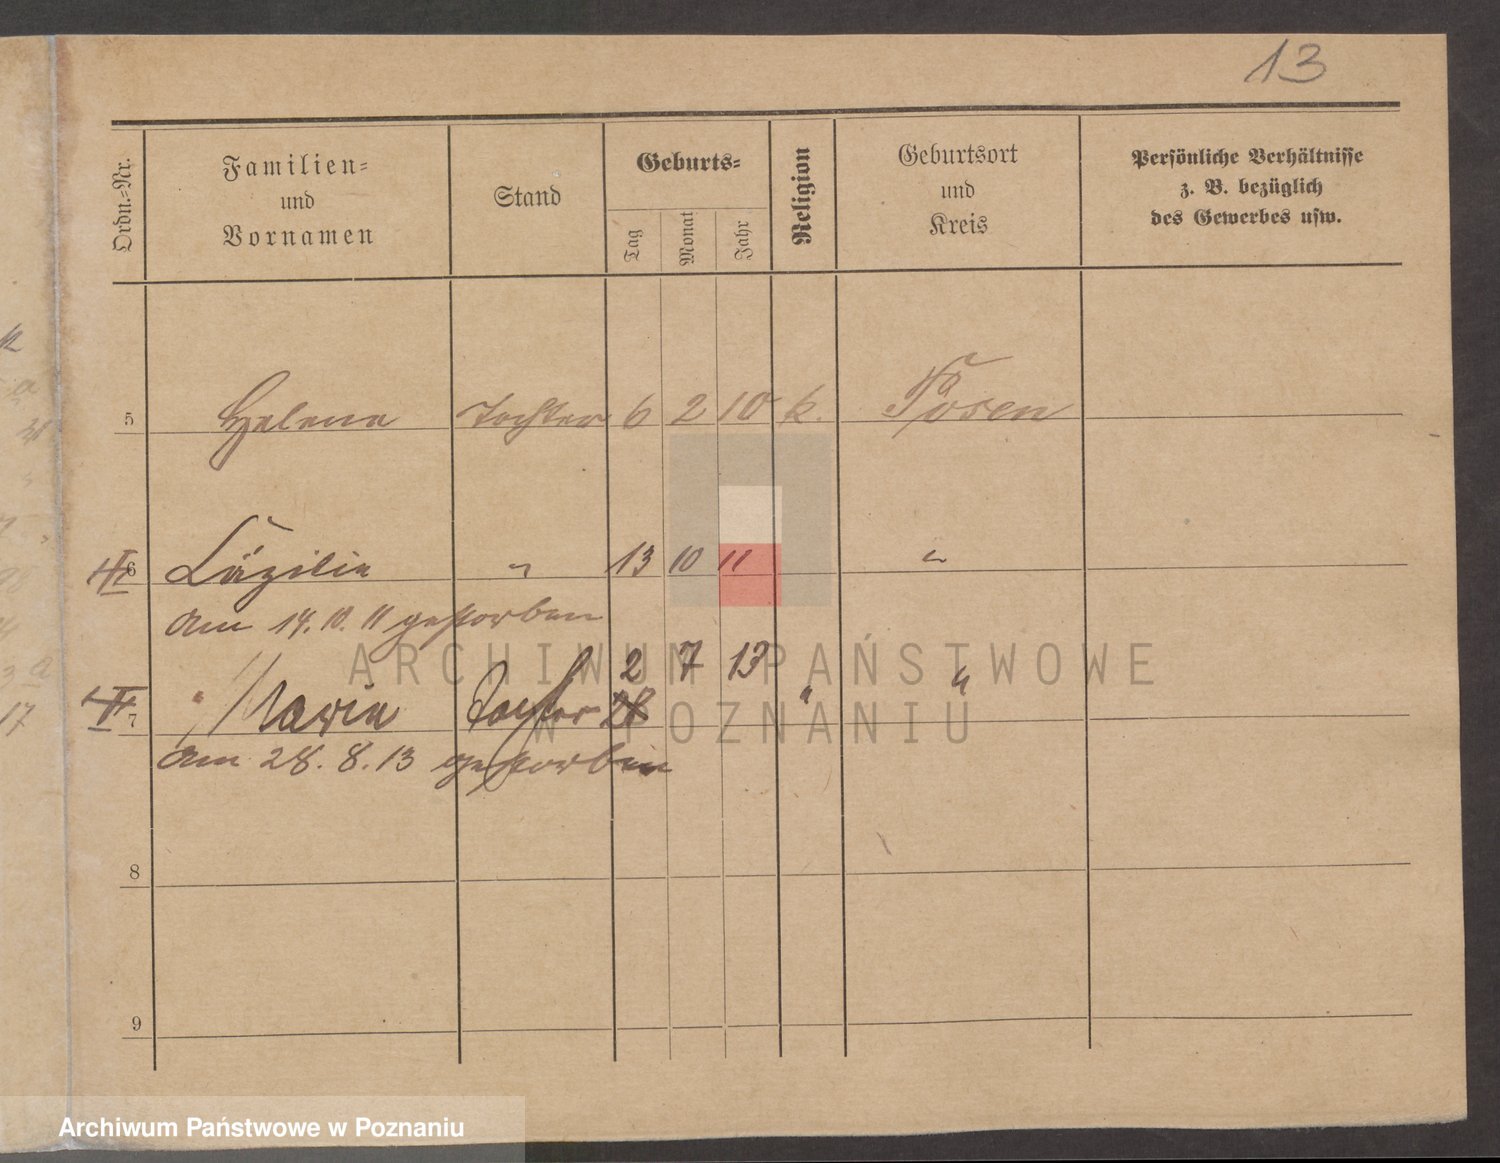 13
Ordn.-Nr.
Familien-
und
Vornamen
Stand
Geburts-
Tag
Monat
Jahr
Religion
Geburtsort
und
Kreis
Persönliche Verhältnisse
z. B. bezüglich
des Gewerbes usw.
5 Helene Tochter 6 2 10 k. Posen
6 Cäzilie " 13 10 11 "
Am 14. 10. 11 gestorben
2 7 13
7 Marie Tochter " "
Am 28. 8. 13 gestorben
8
9
ARCHIWUM PAŃSTWOWE
W POZNANIU
Archiwum Państwowe w Poznaniu